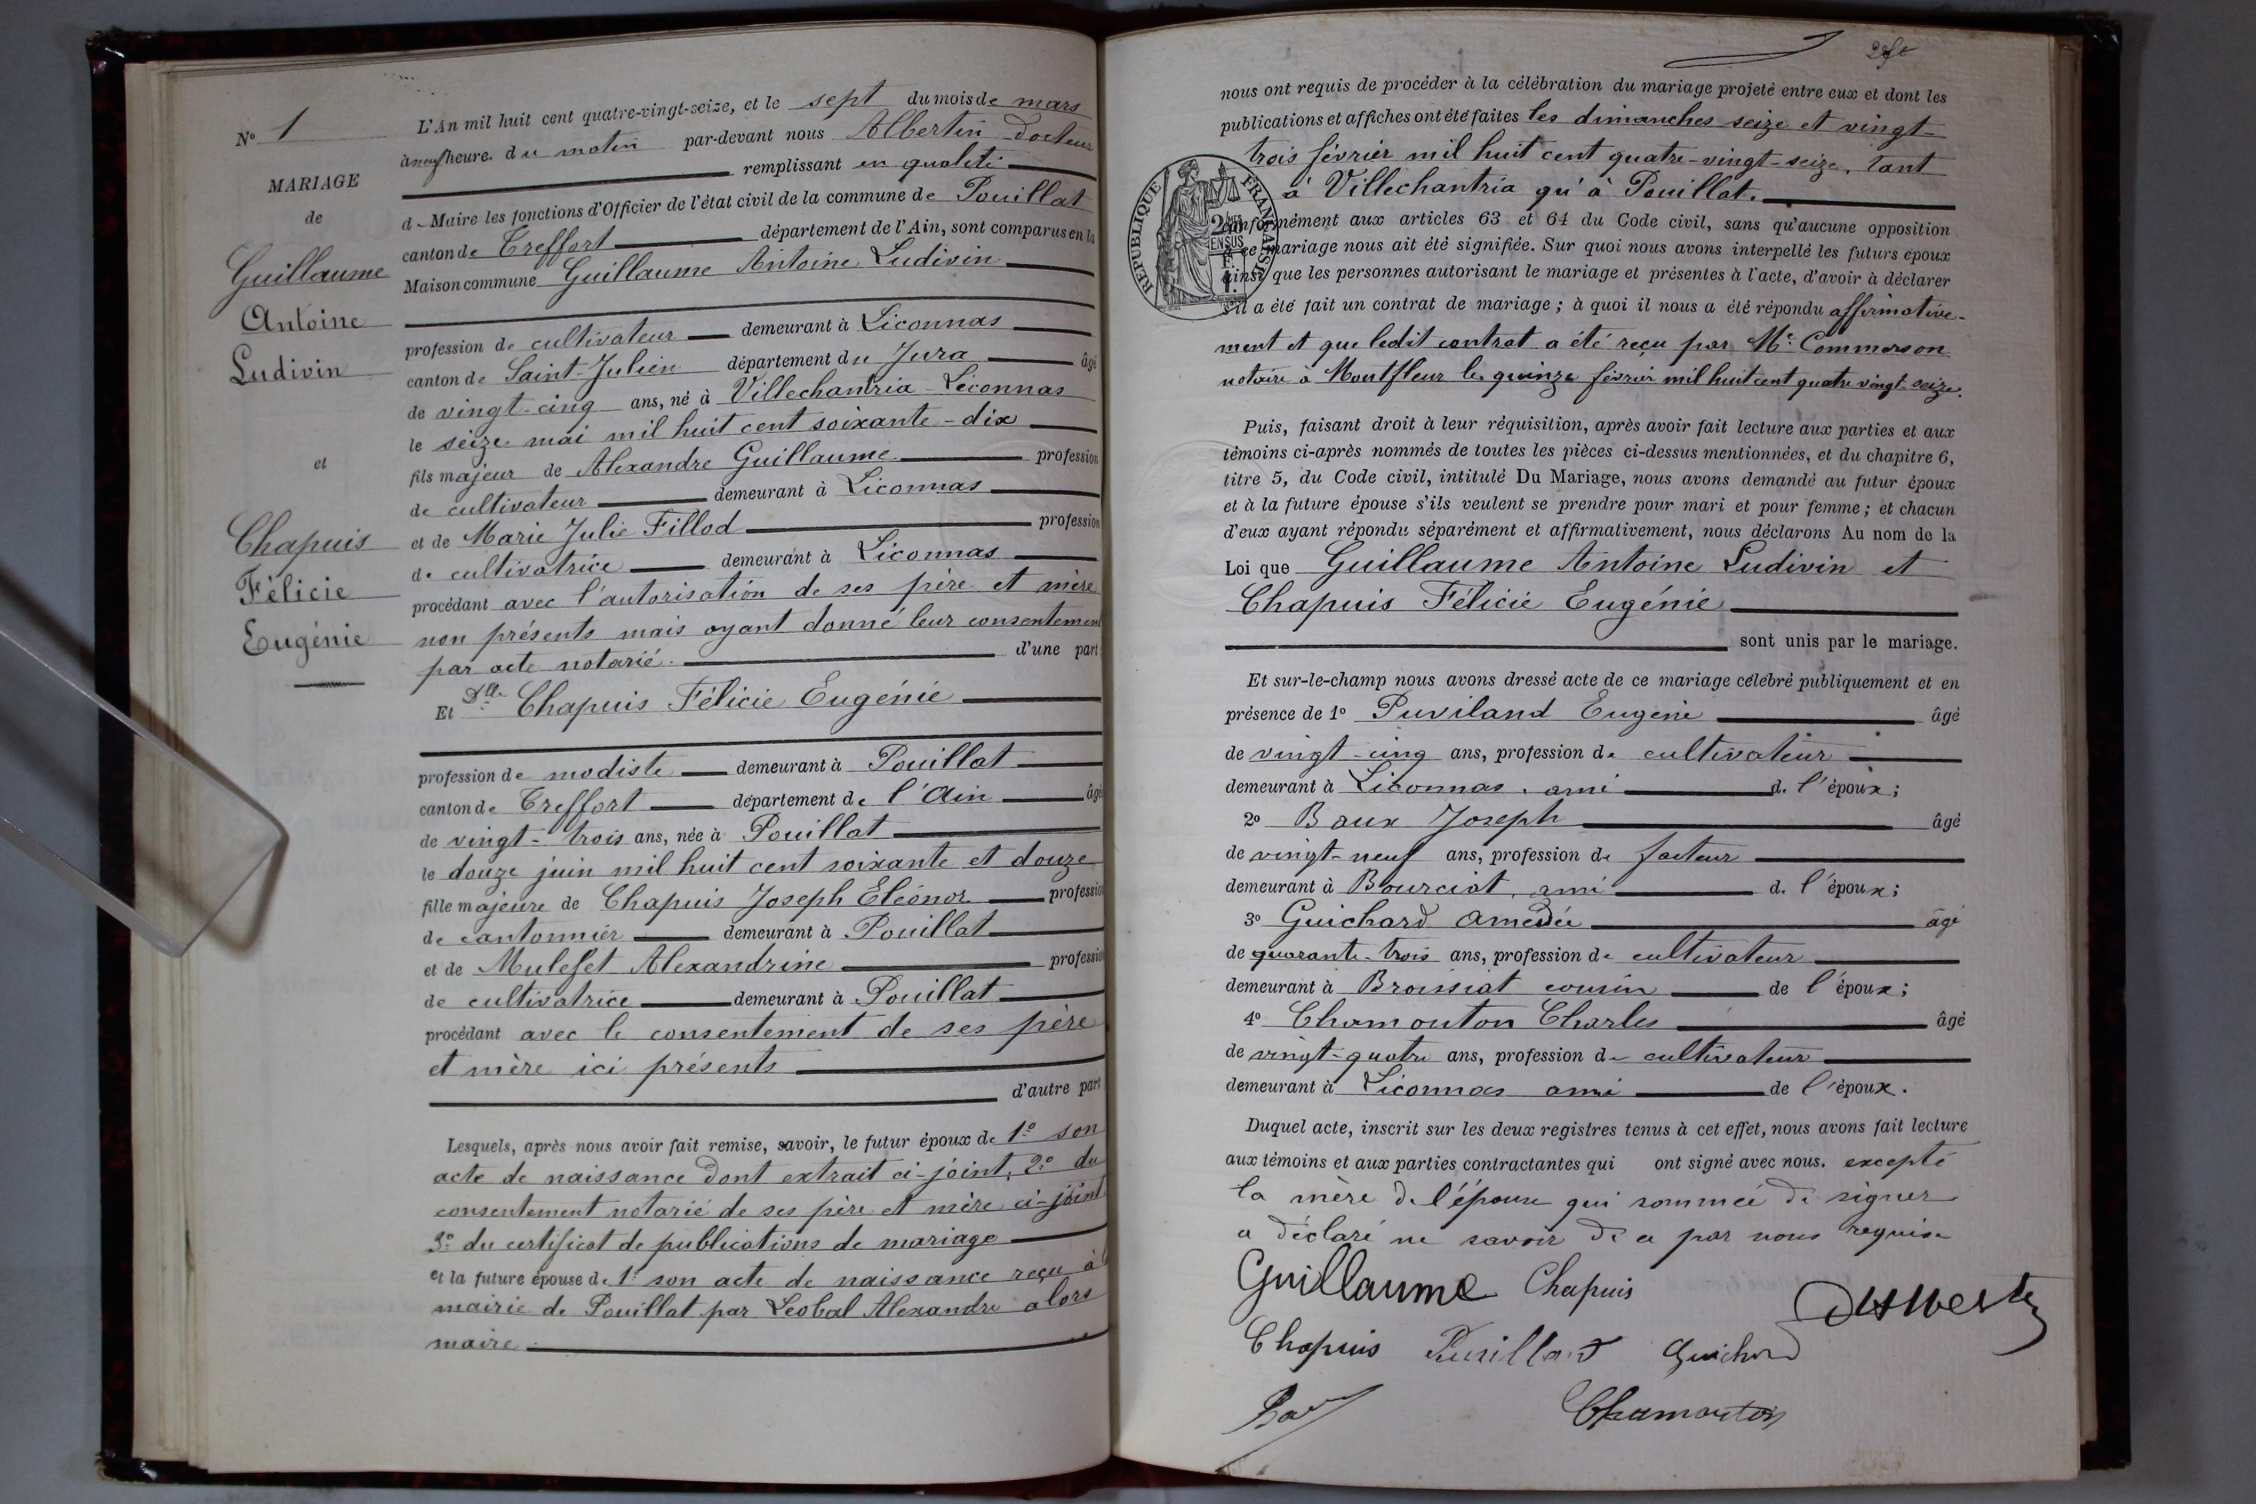 N° 1
MARIAGE
de
Guillaume
Antoine
Ludivin
et
Chapuis
Félicie
Eugénie
L'An mil huit cent quatre-vingt-seize, et le sept du mois de mars
à neuf heure. du matin par-devant nous Albertin Docteur
remplissant en qualité
d Maire les fonctions d'Officier de l'état civil de la commune de Pouillat
canton de Treffort département de l'Ain, sont comparus en la
Maison commune Guillaume Antoine Ludivin
profession de cultivateur demeurant à Liconnas
canton de Saint-Julien département du Jura âgé
de vingt-cinq ans, né à Villechantria-Liconnas
le seize mai mil huit cent soixante-dix
fils majeur de Alexandre Guillaume profession
de cultivateur demeurant à Liconnas
et de Marie Julie Fillod profession
de cultivatrice demeurant à Liconnas
procédant avec l'autorisation de ses père et mère
non présents mais ayant donné leur consentement
par acte notarié. d'une part
Et Dlle Chapuis Félicie Eugénie
profession de modiste demeurant à Pouillat
canton de Treffort département de l'Ain âgé
de vingt-trois ans, née à Pouillat
le douze juin mil huit cent soixante et douze
fille majeure de Chapuis Joseph Eléonor profession
de cantonnier demeurant à Pouillat
et de Mulefet Alexandrine profession
de cultivatrice demeurant à Pouillat
procédant avec le consentement de ses père
et mère ici présents
d'autre part
Lesquels, après nous avoir fait remise, savoir, le futur époux de 1° son
acte de naissance dont extrait ci-joint, 2° du
consentement notarié de ses père et mère ci-joint
3° du certificat de publications de mariage
et la future épouse de 1° son acte de naissance reçu à
mairie de Pouillat par Leobal Alexandre alors
maire.
nous ont requis de procéder à la célébration du mariage projeté entre eux et dont les
publications et affiches ont été faites les dimanches seize et vingt-
trois février mil huit cent quatre-vingt-seize, tant
à Villechantria qu'à Pouillat.
REPUBLIQUE FRANÇAISE
conformément aux articles 63 et 64 du Code civil, sans qu'aucune opposition
à ce mariage nous ait été signifiée. Sur quoi nous avons interpellé les futurs époux
ainsi que les personnes autorisant le mariage et présentes à l'acte, d'avoir à déclarer
s'il a été fait un contrat de mariage ; à quoi il nous a été répondu affirmative-
ment et que ledit contrat a été reçu par Me Commerson
notaire à Montfleur le quinze février mil huit cent quatre vingt-seize.
Puis, faisant droit à leur réquisition, après avoir fait lecture aux parties et aux
témoins ci-après nommés de toutes les pièces ci-dessus mentionnées, et du chapitre 6,
titre 5, du Code civil, intitulé Du Mariage, nous avons demandé au futur époux
et à la future épouse s'ils veulent se prendre pour mari et pour femme ; et chacun
d'eux ayant répondu séparément et affirmativement, nous déclarons Au nom de la
Loi que Guillaume Antoine Ludivin et
Chapuis Félicie Eugénie
sont unis par le mariage.
Et sur-le-champ nous avons dressé acte de ce mariage célébré publiquement et en
présence de 1° Puviland Eugène âgé
de vingt-cinq ans, profession de cultivateur
demeurant à Liconnas, ami d. l'époux ;
2° Baux Joseph âgé
de vingt-neuf ans, profession de facteur
demeurant à Bourciat, ami d. l'époux ;
3° Guichard Amédée âgé
de quarante-trois ans, profession de cultivateur
demeurant à Broissiat cousin de l'époux ;
4° Chamouton Charles âgé
de vingt-quatre ans, profession de cultivateur
demeurant à Liconnas ami de l'époux.
Duquel acte, inscrit sur les deux registres tenus à cet effet, nous avons fait lecture
aux témoins et aux parties contractantes qui ont signé avec nous. excepté
la mère de l'épouse qui sommée de signer
a déclaré ne savoir de ce par nous requise
Guillaume Chapuis
Chapuis Puvilland Guichard
Chamouton